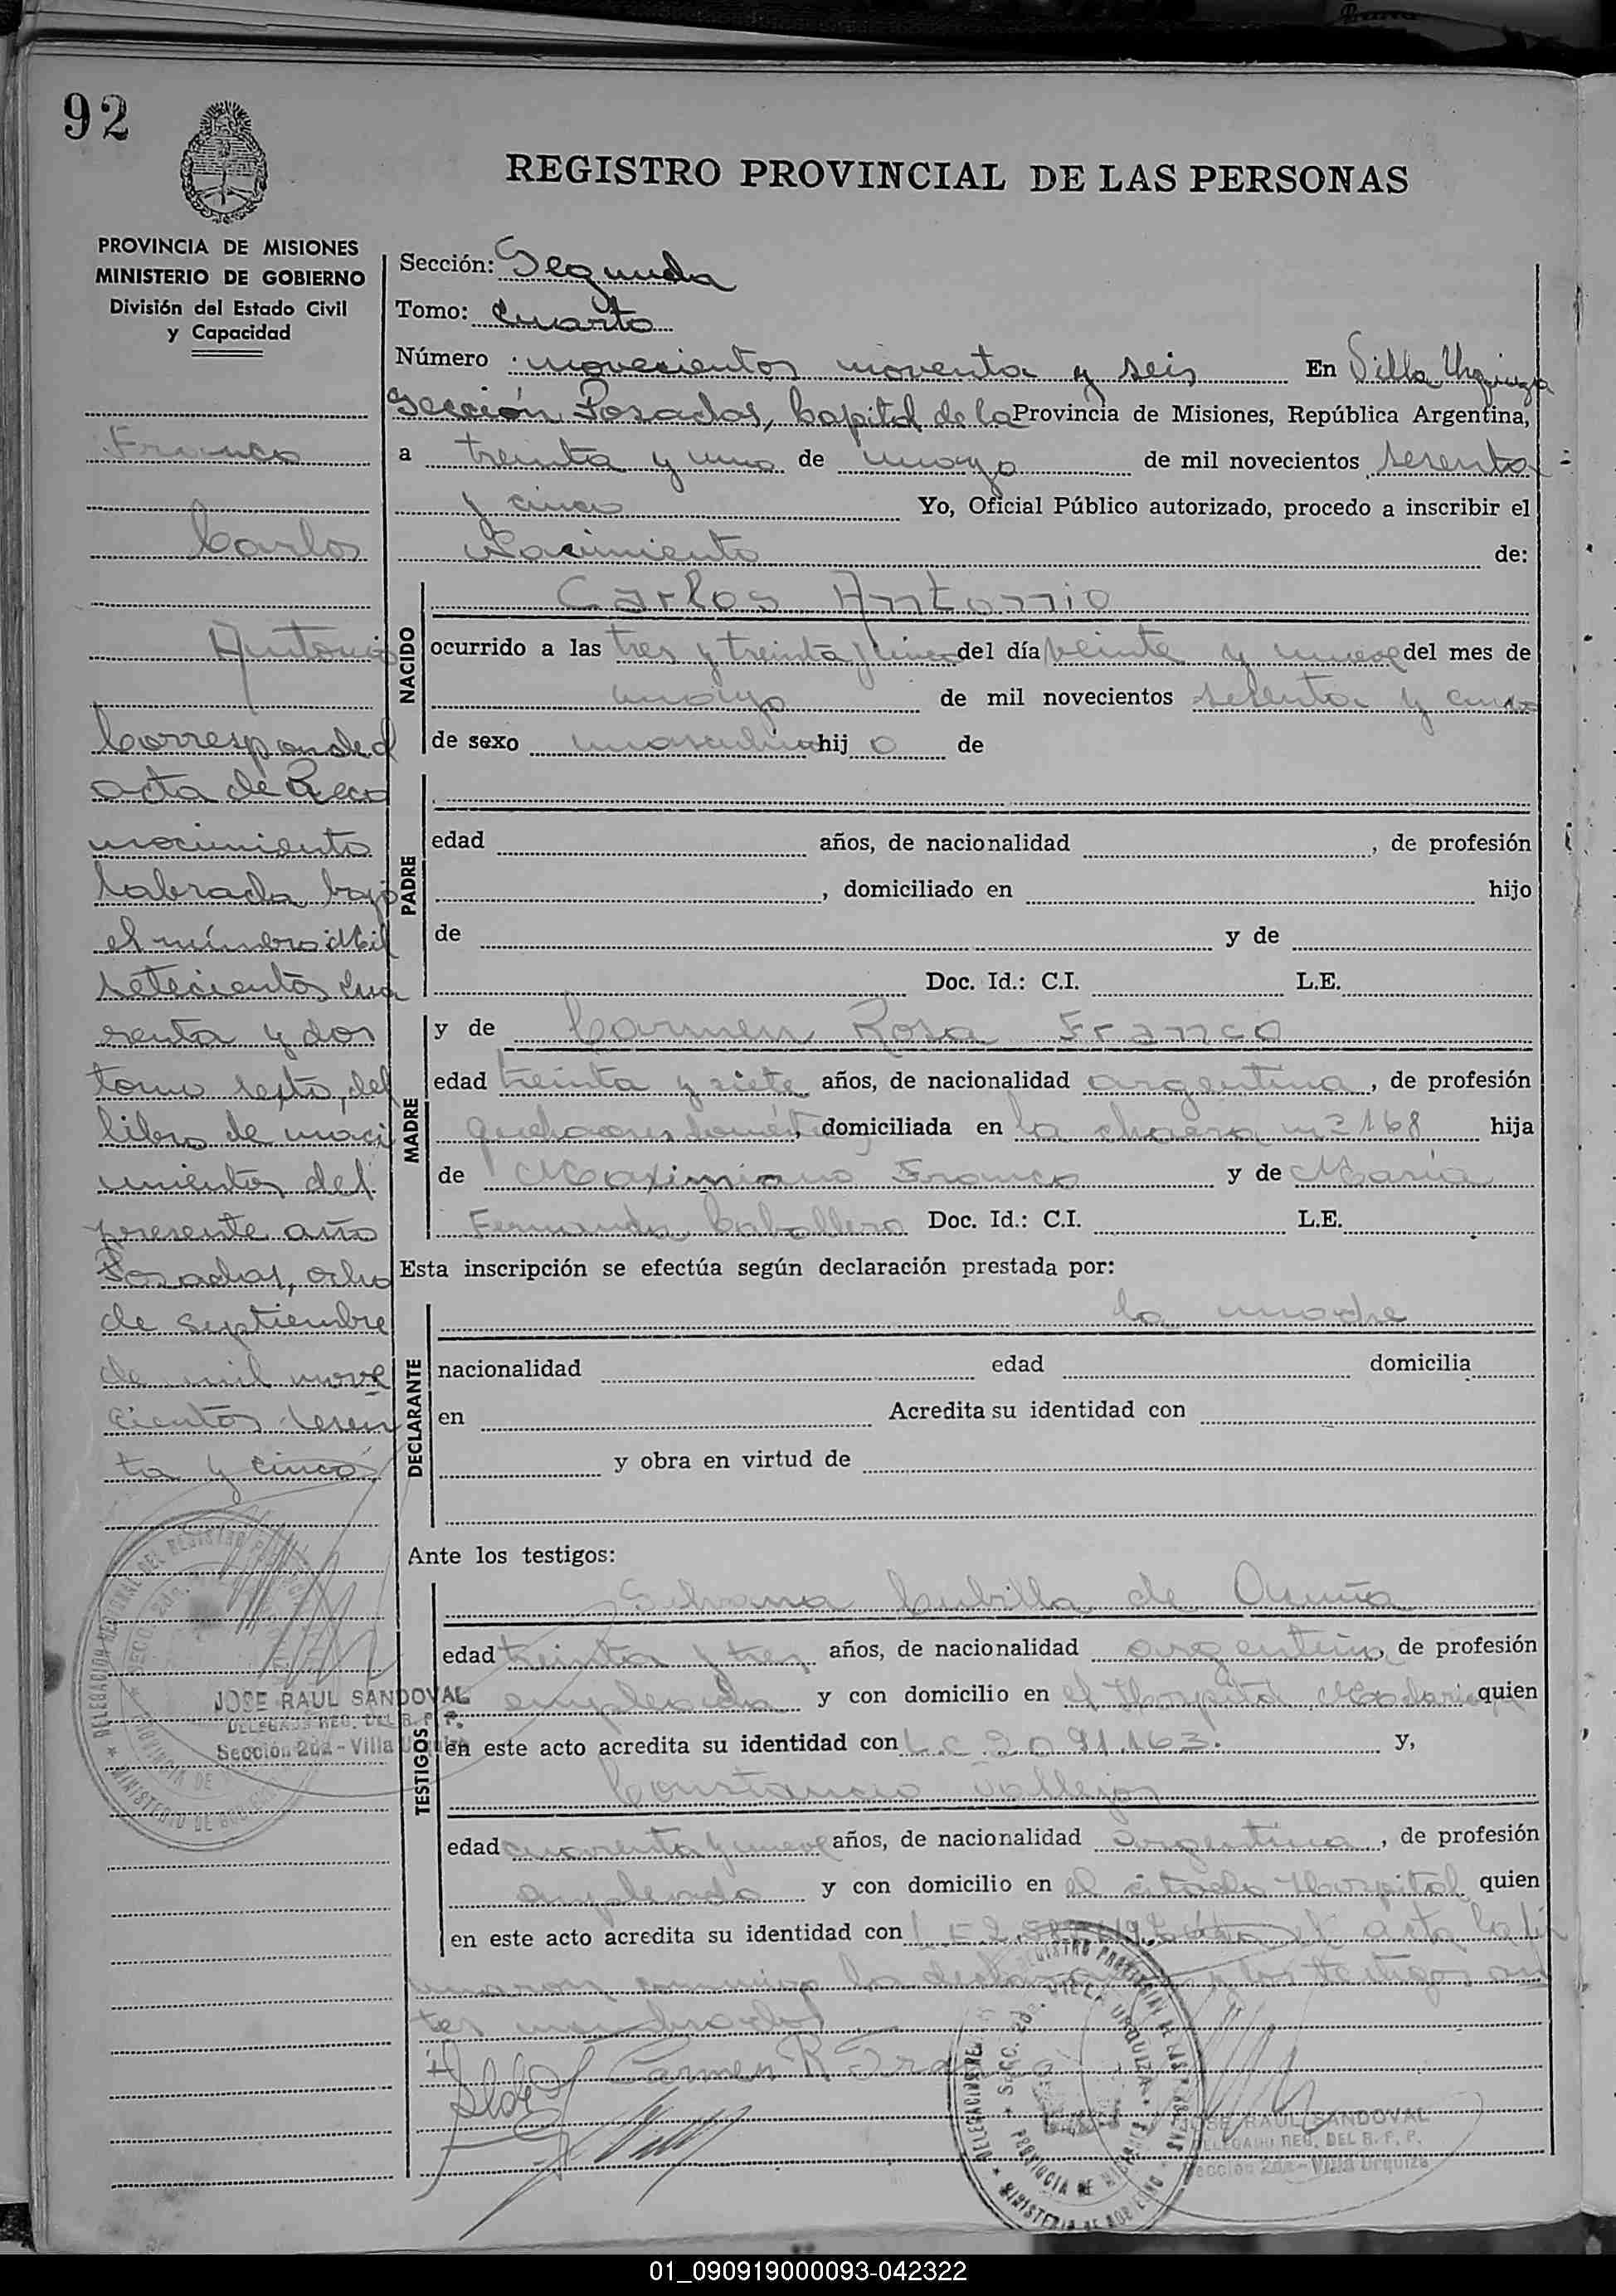 92
REGISTRO PROVINCIAL DE LAS PERSONAS
PROVINCIA DE MISIONES
MINISTERIO DE GOBIERNO
División del Estado Civil
y Capacidad
Franco
Carlos
Antonio
Corresponde al
acta de Reco
nocimiento
labrada bajo
el número Mil
setecientos cua
renta y dos
tomo sexto, del
libro de naci
mientos del
presente año
Posadas, ocho
de septiembre
de mil nove
cientos sesen
ta y cinco
JOSE RAUL SANDOVAL
DELEGADO REG. DEL R. P. P.
Sección 2da - Villa Urquiza
Sección: Segunda
Tomo: Cuarto
Número novecientos noventa y seis En Villa Urquiza
Sección Posadas, Capital de la Provincia de Misiones, República Argentina,
a treinta y uno de mayo de mil novecientos sesenta
y cinco Yo, Oficial Público autorizado, procedo a inscribir el
Nacimiento de:
NACIDO
Carlos Antonio
ocurrido a las tres y treinta y cinco del día veinte y nueve del mes de
mayo de mil novecientos sesenta y cinco
de sexo masculino hijo de
PADRE
edad años, de nacionalidad , de profesión
, domiciliado en hijo
de y de
Doc. Id.: C.I. L.E.
MADRE
y de Carmen Rosa Franco
edad treinta y siete años, de nacionalidad argentina, de profesión
quehaceres domésticos, domiciliada en la chacra nº 168 hija
de Maximiano Franco y de María
Fernanda Caballero Doc. Id.: C.I. L.E.
Esta inscripción se efectúa según declaración prestada por:
DECLARANTE
la madre
nacionalidad edad domicilia
en Acredita su identidad con
y obra en virtud de
Ante los testigos:
TESTIGOS
Cubilla de Acuña
edad treinta y tres años, de nacionalidad argentina, de profesión
empleada y con domicilio en el Hospital Madariaga quien
en este acto acredita su identidad con L.C. 2.091.163. y,
Constancio Vallejos
edad cuarenta y nueve años, de nacionalidad argentina, de profesión
empleado y con domicilio en el citado Hospital quien
en este acto acredita su identidad con L.E. acta la fir
maron conmigo la declarante y los testigos an
tes nombrados
Carmen R Franco
DELEGACION REGIONAL DEL REGISTRO PROVINCIAL DE LAS PERSONAS
SECC. 2da. VILLA URQUIZA
PROVINCIA DE MISIONES
MINISTERIO DE GOBIERNO
JOSE RAUL SANDOVAL
DELEGADO REG. DEL R. P. P.
Sección 2da - Villa Urquiza
01_090919000093-042322